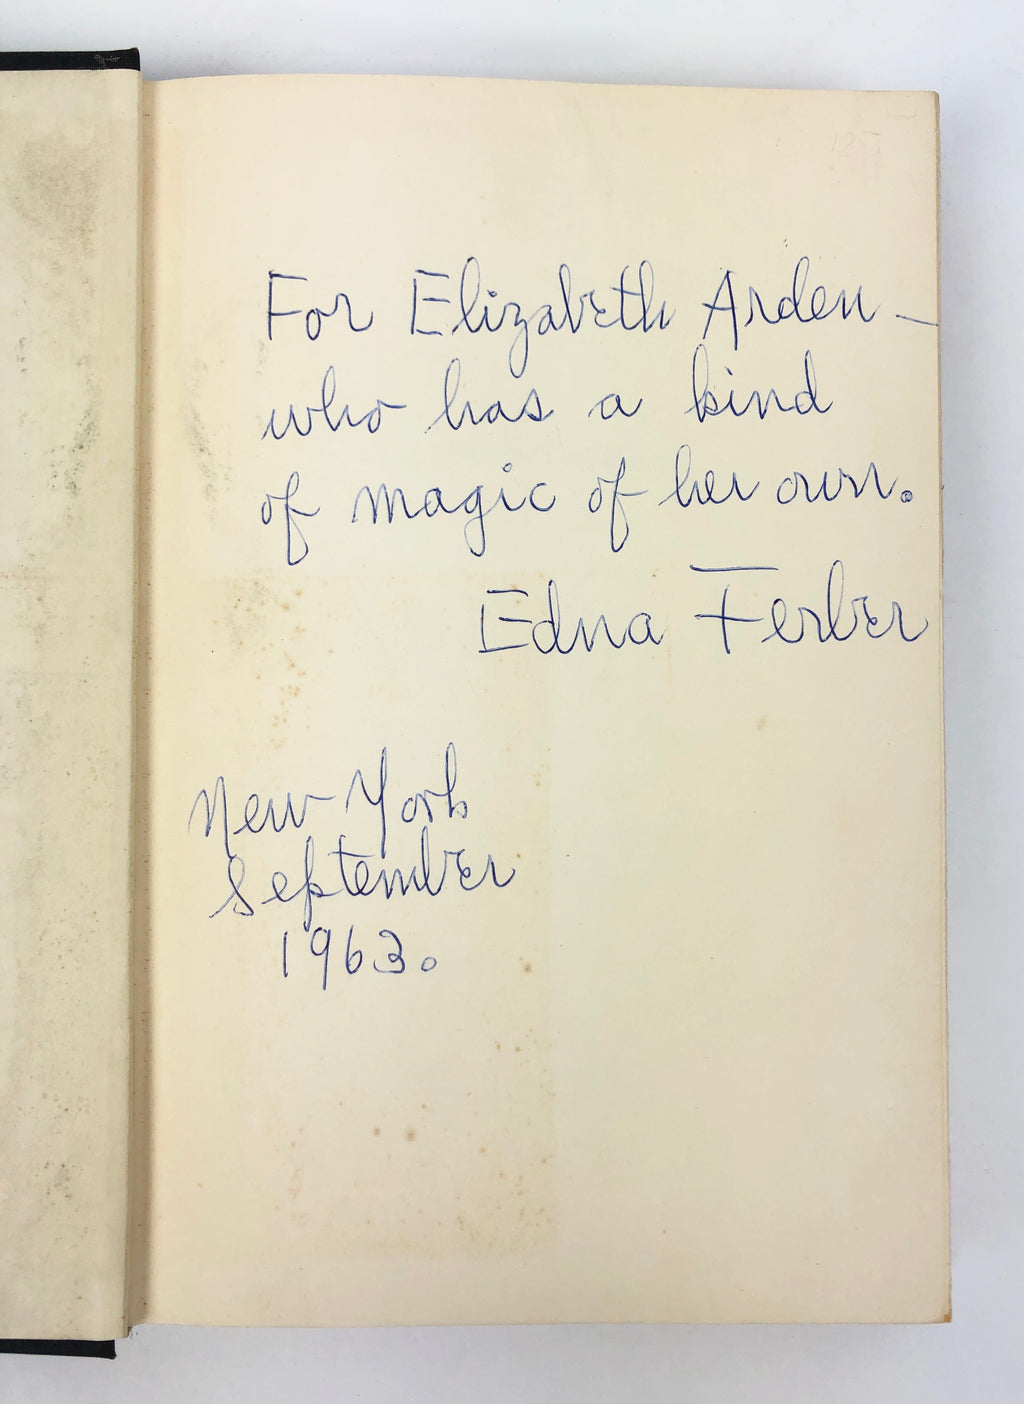 For Elizabeth Arden —
who has a kind
of magic of her own.
Edna Ferber
New York
September
1963.